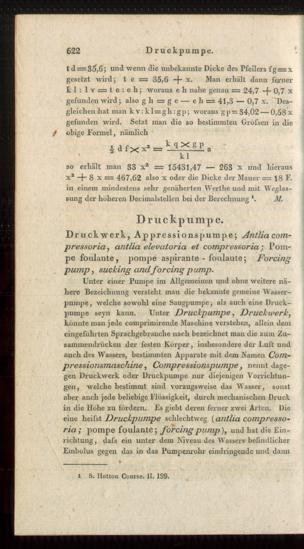 622 Druckpumpe.
td = 35,6; und wenn die unbekannte Dicke des Pfeilers fg = x
gesetzt wird; te = 35,6 + x. Man erhält dann ferner
kl : lv = te : eh; woraus eh nahe genau = 24,7 + 0,7 x
gefunden wird; also gh = ge — eh = 41,3 — 0,7 x. Des-
gleichen hat man kv : kl = gh : gp; woraus gp = 34,02 — 0,58 x
gefunden wird. Setzt man die so bestimmten Gröſsen in die
obige Formel, nämlich
½ df × x² = kq × gp / kl s
so erhält man 33 x² = 15431,47 — 263 x und hieraus
x² + 8 x = 467,62 also x oder die Dicke der Mauer = 18 F.
in einem mindestens sehr genäherten Werthe und mit Weglas-
sung der höheren Decimalstellen bei der Berechnung ¹. M.
Druckpumpe.
Druckwerk, Appressionspumpe; Antlia com-
pressoria, antlia elevatoria et compressoria; Pom-
pe foulante, pompe aspirante - foulante; Forcing
pump, sucking and forcing pump.
Unter einer Pumpe im Allgemeinen und ohne weitere nä-
here Bezeichnung versteht man die bekannte gemeine Wasser-
pumpe, welche sowohl eine Saugpumpe, als auch eine Druck-
pumpe seyn kann. Unter Druckpumpe, Druckwerk,
könnte man jede comprimirende Maschine verstehen, allein dem
eingeführten Sprachgebrauche nach bezeichnet man die zum Zu-
sammendrücken der festen Körper, insbesondere der Luft und
auch des Wassers, bestimmten Apparate mit dem Namen Com-
pressionsmaschine, Compressionspumpe, nennt dage-
gen Druckwerk oder Druckpumpe nur diejenigen Vorrichtun-
gen, welche bestimmt sind vorzugsweise das Wasser, sonst
aber auch jede beliebige Flüssigkeit, durch mechanischen Druck
in die Höhe zu fördern. Es giebt deren ferner zwei Arten. Die
eine heiſst Druckpumpe schlechtweg (antlia compresso-
ria; pompe foulante; forcing pump), und hat die Ein-
richtung, daſs ein unter dem Niveau des Wassers befindlicher
Embolus gegen das in das Pumpenrohr eindringende und dann
1 S. Hutton Course. II. 199.